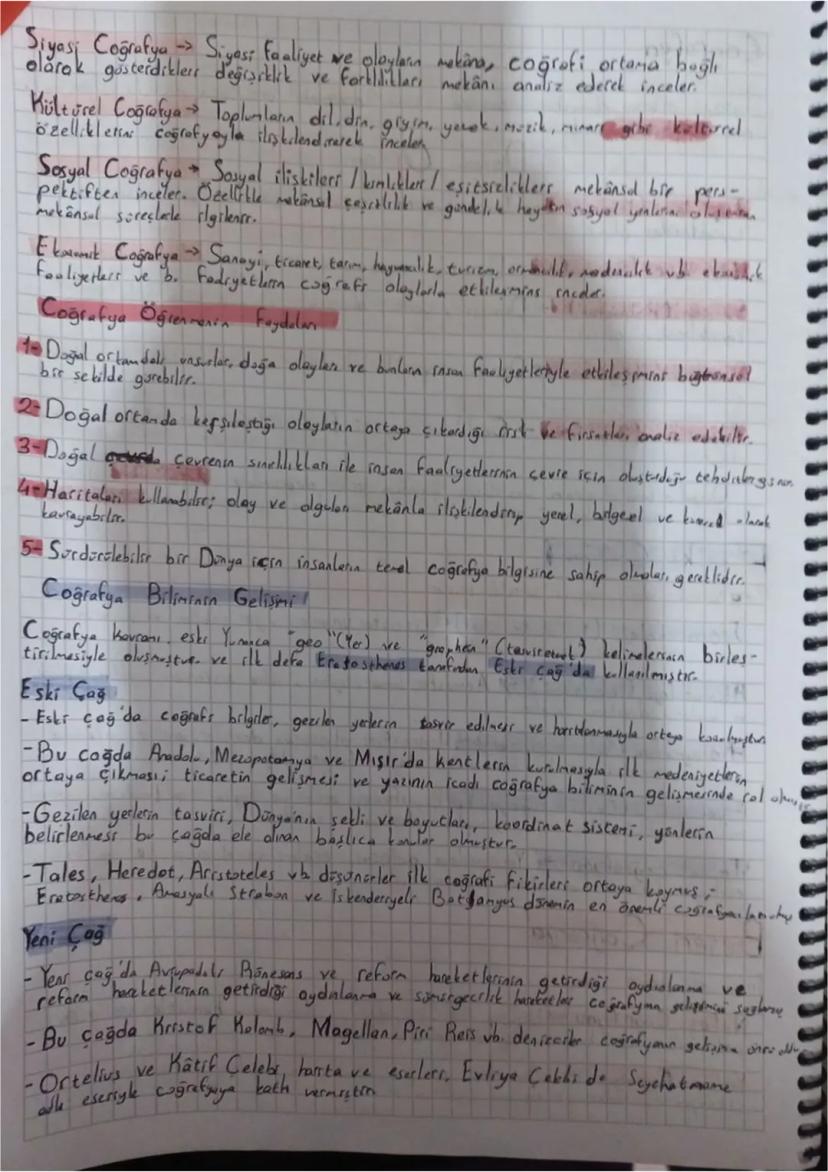 Siyasi Coğrafya → Siyasi faaliyet ve olayların mekâna, coğrafi ortama bağlı
olarak gösterdikleri değişiklik ve farklılıkları mekânı analiz ederek inceler.
Kültürel Coğrafya → Toplumların dil, din, giyim, yemek, müzik, mimari gibi kültürel
özelliklerini coğrafyayla ilişkilendirerek inceler
Sosyal Coğrafya → Sosyal ilişkileri / kimlikleri / eşitsizlikleri mekânsal bir pers-
pektiften inceler. Özellikle mekânsal çeşitlilik ve gündelik hayatın sosyal yönlerini oluşturan
mekânsal süreçlerle ilgilenir.
Ekonomik Coğrafya → Sanayi, ticaret, tarım, hayvancılık, turizm, ormancılık, madencilik vb. ekonomik
faaliyetleri ve b. faaliyetlerin coğrafi olaylarla etkileşimini inceler.
Coğrafya Öğrenmenin Faydaları
1- Doğal ortamdaki unsurlar, doğa olayları ve bunların insan faaliyetleriyle etkileşimini bütünsel
bir şekilde görebilir.
2- Doğal ortamda karşılaştığı olayların ortaya çıkardığı risk ve fırsatları analiz edebilir.
3- Doğal çevrenin sınırlılıkları ile insan faaliyetlerinin çevre için oluşturduğu
4- Haritaları kullanabilir; olay ve olguları mekânla ilişkilendirip yerel, bölgesel ve küresel olarak
kavrayabilir.
5- Sürdürülebilir bir Dünya için insanların temel coğrafya bilgisine sahip olmaları gereklidir.
Coğrafya Biliminin Gelişimi!
Coğrafya kavramı, eski Yunanca "geo" (Yer) ve "graphein" (tasvir etmek) kelimelerinin birleş-
tirilmesiyle oluşmuştur. ve ilk defa Eratosthenes tarafından Eski Çağ'da kullanılmıştır.
Eski Çağ
- Eski çağ'da coğrafi bilgiler, gezilen yerlerin tasvir edilmesi ve haritalanmasıyla ortaya konulmuştur.
- Bu çağda Anadolu, Mezopotamya ve Mısır'da kentlerin kurulmasıyla ilk medeniyetlerin
ortaya çıkması; ticaretin gelişmesi ve yazının icadı coğrafya biliminin gelişmesinde rol
- Gezilen yerlerin tasviri, Dünya'nın şekli ve boyutları, koordinat sistemi, yönlerin
belirlenmesi bu çağda ele alınan başlıca konular olmuştur.
- Tales, Heredot, Aristoteles vb düşünürler ilk coğrafi fikirleri ortaya koymuş;
Eratosthenes, Amasyalı Strabon ve İskenderiyeli Batlamyus dönemin en önemli
Yeni Çağ
- Yeni çağ'da Avrupadaki Rönesans ve reform hareketlerinin getirdiği aydınlanma ve
reform hareketlerinin getirdiği aydınlanma ve sömürgecilik hareketleri coğrafyanın gelişimini
- Bu çağda Kristof Kolomb, Magellan, Piri Reis vb. denizciler coğrafyanın gelişimine
- Ortelius ve Kâtif Çelebi, harita ve eserleri, Evliya Çelebi de Seyehatname
adlı eseriyle coğrafyaya katkı vermiştir